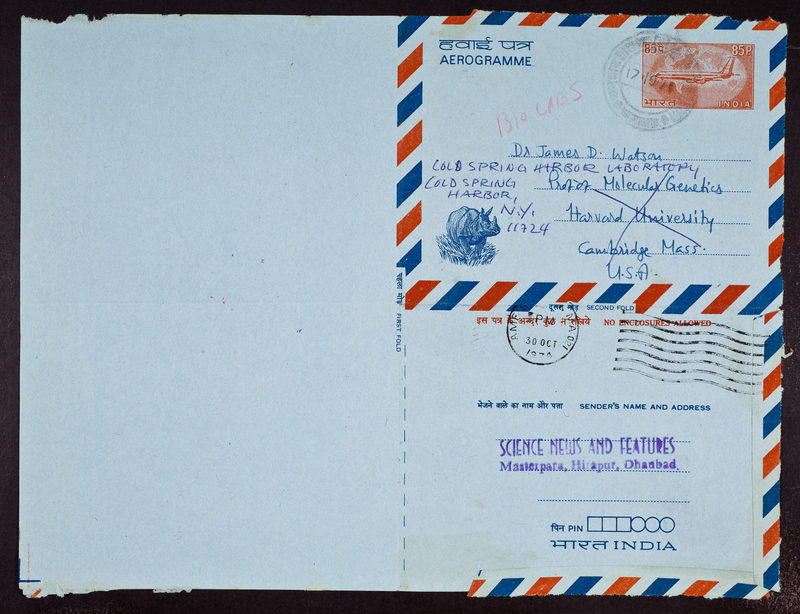 हवाई पत्र
AEROGRAMME
85 प
85 P
भारत
INDIA
BIO LABS
Dr James D. Watson
COLD SPRING HARBOR LABORATORY
COLD SPRING
HARBOR,
N.Y.
11724
Prof of Molecular Genetics
Harvard University
Cambridge Mass.
U.S.A.
पहला मोड़ FIRST FOLD
दूसरा मोड़ SECOND FOLD
इस पत्र के अन्दर कुछ न रखिये NO ENCLOSURES ALLOWED
PM
30 OCT
भेजने वाले का नाम और पता SENDER'S NAME AND ADDRESS
SCIENCE NEWS AND FEATURES
Masterpara, Hirapur, Dhanbad.
पिन PIN
भारत INDIA